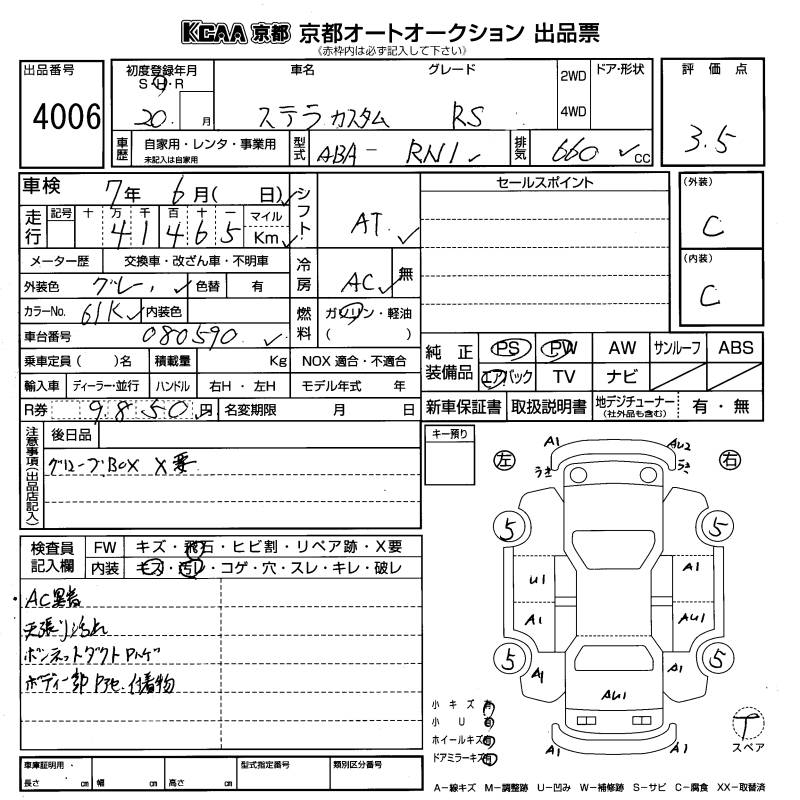 KCAA 京都 京都オートオークション 出品票
《赤枠内は必ず記入して下さい》
出品番号
4006
初度登録年月
S・H・R
20 月
車名
グレード
ステラ カスタム RS
2WD
4WD
ドア・形状
評価点
3.5
車歴
自家用・レンタ・事業用
未記入は自家用
型式
ABA - RN1
排気
660 cc
車検
7年 6月( 日)
シフト
AT
走行
記号 十 万 千 百 十 一 マイル
4 1 4 6 5 Km
メーター歴 交換車・改ざん車・不明車
冷房
AC 無
外装色 グレー 色替 有
カラーNo. 61K 内装色
燃料
ガソリン・軽油
( )
車台番号 080590
乗車定員( )名 積載量 Kg NOX 適合・不適合
輸入車 ディーラー・並行 ハンドル 右H・左H モデル年式 年
R券 9850円 名変期限 月 日
注意事項(出品店記入)
後日品
グローブBOX X要
セールスポイント
(外装)
C
(内装)
C
純正装備品
PS PW AW サンルーフ ABS
エアバック TV ナビ
新車保証書 取扱説明書 地デジチューナー 有・無
(社外品も含む)
キー預り
左 右
A1 うき AU2 うき
5 5
U1 A1
A1 AU1
5 5
A1 A1
AU1
A1 A1
小キズ 有
小U 有
ホイールキズ 有
ドアミラーキズ 有
T
スペア
検査員記入欄
FW キズ・飛石・ヒビ割・リペア跡・X要
内装 キズ・汚レ・コゲ・穴・スレ・キレ・破レ
・AC異音
天張り汚れ
ボンネットダクトPハゲ
ボディ一部P 付着物
車庫証明用・
長さ cm 幅 cm 高さ cm
型式指定番号
類別区分番号
A－線キズ M－調整跡 U－凹み W－補修跡 S－サビ C－腐食 XX－取替済